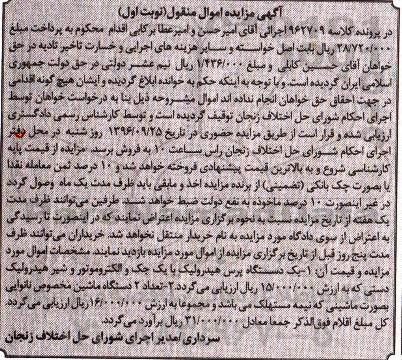 آگهی مزایده اموال منقول(نوبت اول)
در پرونده کلاسه ۹۶۲۷۰۹ اجرائی آقای امیرحسن و امیرعطا برکابی اقدام محکوم به پرداخت مبلغ
۲۸/۷۲۰/۰۰۰ ریال بابت اصل خواسته و سایر هزینه های اجرایی و خسارت تاخیر تادیه در حق
خواهان آقای حسین کابلی و مبلغ ۱/۴۳۶/۰۰۰ ریال نیم عشر دولتی در حق دولت جمهوری
اسلامی ایران گردیده است. و با توجه به اینکه حکم به خوانده ابلاغ گردیده و ایشان هیچ گونه اقدامی
در جهت احقاق حق خواهان انجام نداده اند اموال مشروحه ذیل بنا به درخواست خواهان توسط
اجرای احکام شورای حل اختلاف زنجان توقیف گردیده است و توسط کارشناس رسمی دادگستری
ارزیابی شده و قرار است از طریق مزایده حضوری در تاریخ ۱۳۹۶/۰۹/۲۵ روز شنبه در محل دفتر
اجرای احکام شورای حل اختلاف زنجان راس ساعت ۱۰ به فروش برسد. مزایده از قیمت پایه
کارشناسی شروع و به بالاترین قیمت پیشنهادی فروخته خواهد شد و ۱۰ درصد ثمن معامله نقدا
یا بصورت چک بانکی (تضمینی) از برنده مزایده اخذ و مابقی باید ظرف مدت یک ماه وصول گردد
در غیر اینصورت ۱۰ درصد ماخوذه به نفع دولت ضبط خواهد شد. طرفین می توانند ظرف مدت
یک هفته از تاریخ مزایده نسبت به نحوه برگزاری مزایده اعتراض نمایند که در اینصورت تا رسیدگی
به اعتراض از سوی دادگاه مورد مزایده به نام خریدار منتقل نخواهد شد. خریداران می توانند ظرف
مدت پنج روز قبل از تاریخ برگزاری مزایده از اموال مورد مزایده بازدید نمایند. مشخصات اموال مورد
مزایده و قیمت آن: ۱-یک دستگاه پرس هیدرولیک با یک جک و الکتروموتور و شیر هیدرولیک
دستی که به ارزش ۱۵/۰۰۰/۰۰۰ ریال ارزیابی می گردد. ۲-تعداد ۲ دستگاه ماشین مخصوص نانوایی
بصورت ماشینی که نیمه مستهلک می باشد و مجموعا به ارزش ۱۶/۰۰۰/۰۰۰ ریال ارزیابی می گردد.
کل مبلغ اقلام فوق الذکر جمعا معادل ۳۱/۰۰۰/۰۰۰ ریال برآورد می گردد.
سرداری/مدیر اجرای شورای حل اختلاف زنجان